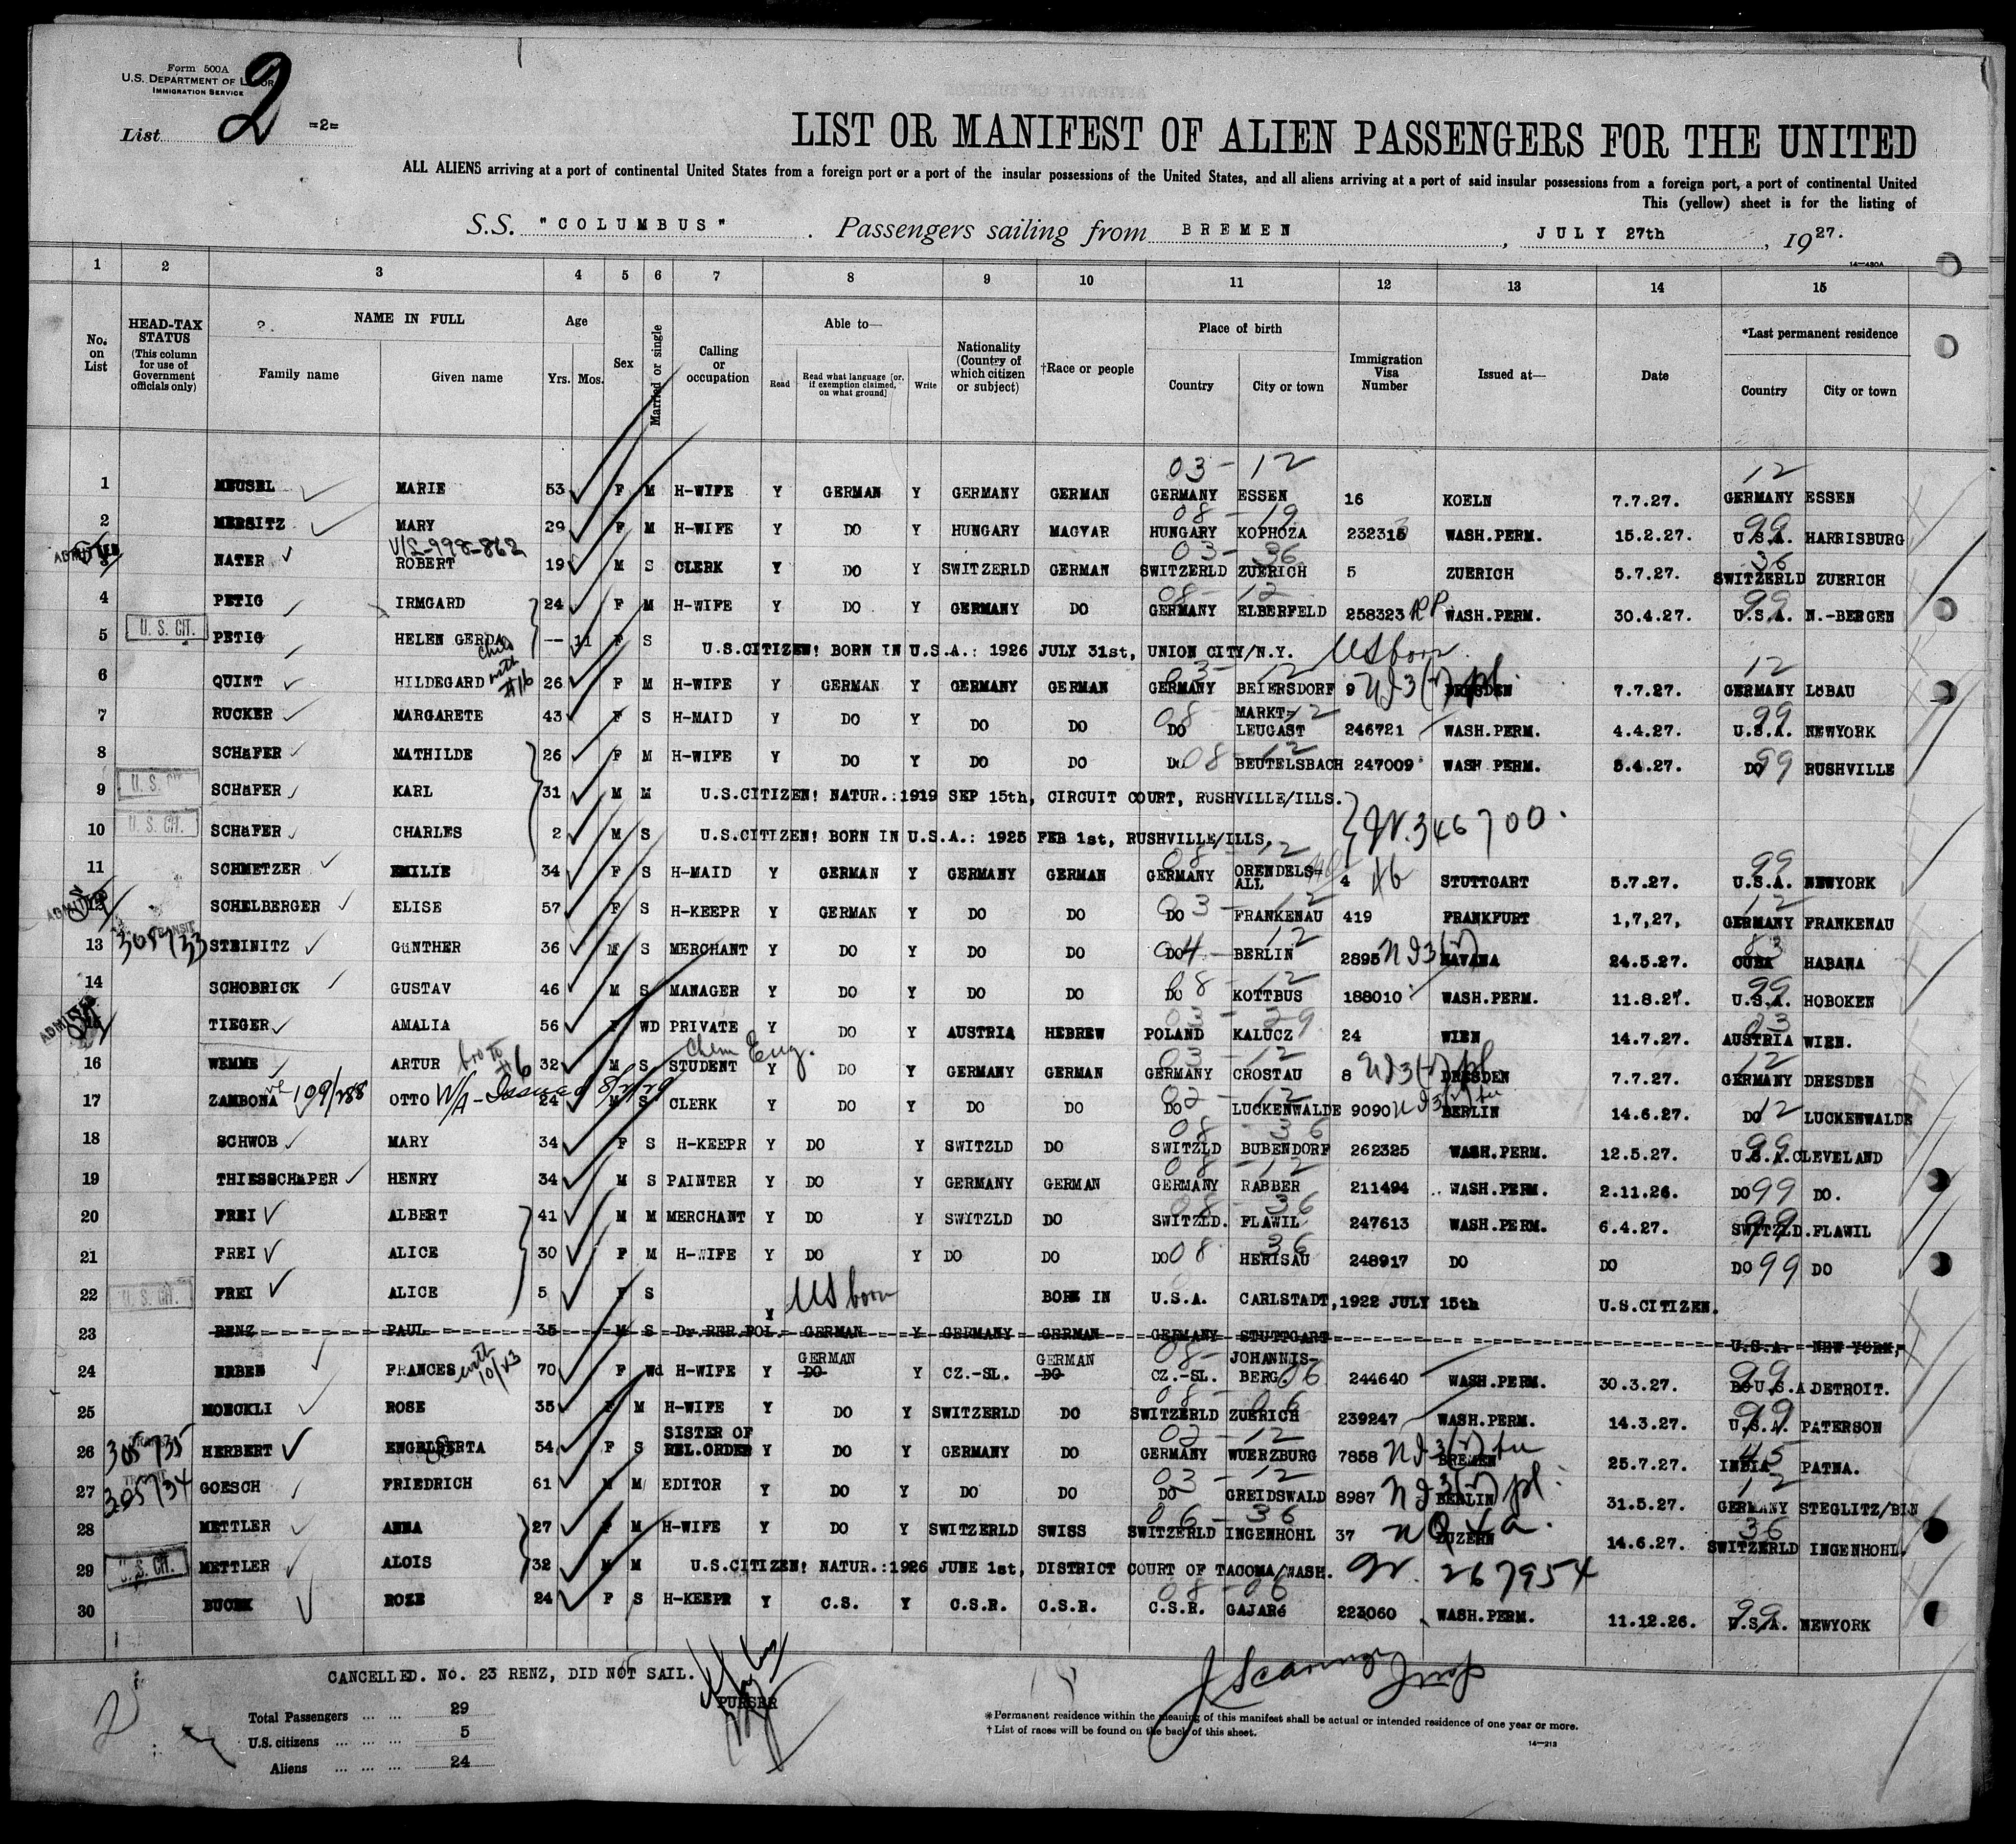 Form 500A
U.S. DEPARTMENT OF LABOR
IMMIGRATION SERVICE
List 2 =2=
LIST OR MANIFEST OF ALIEN PASSENGERS FOR THE UNITED
ALL ALIENS arriving at a port of continental United States from a foreign port or a port of the insular possessions of the United States, and all aliens arriving at a port of said insular possessions from a foreign port, a port of continental United
This (yellow) sheet is for the listing of
S.S. "COLUMBUS" . Passengers sailing from BREMEN , JULY 27th , 1927.
14—480A
1 2 3 4 5 6 7 8 9 10 11 12 13 14 15
No. on List
HEAD-TAX STATUS (This column for use of Government officials only)
NAME IN FULL
Family name Given name
Age Yrs. Mos.
Sex
Married or single
Calling or occupation
Able to—
Read Read what language [or, if exemption claimed, on what ground] Write
Nationality (Country of which citizen or subject)
†Race or people
Place of birth
Country City or town
Immigration Visa Number
Issued at—
Date
*Last permanent residence
Country City or town
03-12 12
1 MEUSEL MARIE 53 F M H-WIFE Y GERMAN Y GERMANY GERMAN GERMANY ESSEN 16 KOELN 7.7.27. GERMANY ESSEN
08-19 99
2 MERSITZ MARY 29 F M H-WIFE Y DO Y HUNGARY MAGYAR HUNGARY KOPHOZA 232313 WASH.PERM. 15.2.27. U.S.A. HARRISBURG
ADMITTED V/L-998-862 03-36 36
3 NATER ROBERT 19 M S CLERK Y DO Y SWITZERLD GERMAN SWITZERLD ZUERICH 5 ZUERICH 5.7.27. SWITZERLD ZUERICH
08-12 99
4 PETIG IRMGARD 24 F M H-WIFE Y DO Y GERMANY DO GERMANY ELBERFELD 258323 RP WASH.PERM. 30.4.27. U.S.A. N.-BERGEN
5 U.S. CIT. PETIG HELEN GERDA -- 11 F S U.S.CITIZEN! BORN IN U.S.A.: 1926 JULY 31st, UNION CITY/N.Y. US born
child with #16 03-12 12
6 QUINT HILDEGARD 26 F M H-WIFE Y GERMAN Y GERMANY GERMAN GERMANY BEIERSDORF 9 DRESDEN 7.7.27. GERMANY LöBAU
7 RUCKER MARGARETE 43 F S H-MAID Y DO Y DO DO 08-12 DO MARKT=LEUGAST 246721 WASH.PERM. 4.4.27. 99 U.S.A. NEWYORK
8 SCHäFER MATHILDE 26 F M H-WIFE Y DO Y DO DO DO 08-12 BEUTELSBACH 247009 WASH PERM. 5.4.27. DO 99 RUSHVILLE
9 U.S. CIT. SCHäFER KARL 31 M M U.S.CITIZEN! NATUR.:1919 SEP 15th, CIRCUIT COURT, RUSHVILLE/ILLS.
10 U.S. CIT. SCHäFER CHARLES 2 M S U.S.CITIZEN! BORN IN U.S.A.: 1925 FEB 1st, RUSHVILLE/ILLS. 346700.
08-12 99
11 SCHMETZER EMILIE 34 F S H-MAID Y GERMAN Y GERMANY GERMAN GERMANY ORENDELS=ALL 4 STUTTGART 5.7.27. U.S.A. NEWYORK
ADMITTED 03-12 12
12 SCHELBERGER ELISE 57 F S H-KEEPR Y GERMAN Y DO DO DO FRANKENAU 419 FRANKFURT 1,7,27, GERMANY FRANKENAU
TRANSIT 305733 04-12 83
13 STEINITZ GüNTHER 36 M S MERCHANT Y DO Y DO DO DO BERLIN 2895 HAVANA 24.5.27. CUBA HABANA
08-12 99
14 SCHOBRICK GUSTAV 46 M S MANAGER Y DO Y DO DO DO KOTTBUS 188010 WASH.PERM. 11.8.27. U.S.A. HOBOKEN
ADMITTED 03-29 03
15 TIEGER AMALIA 56 F WD PRIVATE Y DO Y AUSTRIA HEBREW POLAND KALUCZ 24 WIEN 14.7.27. AUSTRIA WIEN.
bro to #6 Chem Eng. 03-12 12
16 WEMME ARTUR 32 M S STUDENT Y DO Y GERMANY GERMAN GERMANY CROSTAU 8 DRESDEN 7.7.27. GERMANY DRESDEN
109/288 W/A-Issued 8/2/29 02-12 12
17 ZAMBONA OTTO 24 M S CLERK Y DO Y DO DO DO LUCKENWALDE 9090 BERLIN 14.6.27. DO LUCKENWALDE
08-36 99
18 SCHWOB MARY 34 F S H-KEEPR Y DO Y SWITZLD DO SWITZLD BUBENDORF 262325 WASH.PERM. 12.5.27. U.S.A.CLEVELAND
08-12
19 THIESSCHäPER HENRY 34 M S PAINTER Y DO Y GERMANY GERMAN GERMANY RABBER 211494 WASH.PERM. 2.11.26. DO 99 DO.
08-36 99
20 FREI ALBERT 41 M M MERCHANT Y DO Y SWITZLD DO SWITZLD. FLAWIL 247613 WASH.PERM. 6.4.27. SWITZLD.FLAWIL
21 FREI ALICE 30 F M H-WIFE Y DO Y DO DO DO 08 36 HERISAU 248917 DO DO DO 99 DO
22 U.S. CIT. FREI ALICE 5 F S US born BORN IN U.S.A. CARLSTADT,1922 JULY 15th U.S.CITIZEN.
23 RENZ PAUL 35 M S Dr.RER.POL. Y GERMAN Y GERMANY GERMAN GERMANY STUTTGART U.S.A. NEW YORK,
24 ERBEN FRANCES 70 F Wd H-WIFE Y GERMAN DO Y CZ.-SL. GERMAN DO 08- CZ.-SL. JOHANNIS-BERG. 06 244640 WASH.PERM. 30.3.27. 99 DO U.S.A DETROIT.
08-06 99
25 MOECKLI ROSE 35 F M H-WIFE Y DO Y SWITZERLD DO SWITZERLD ZUERICH 239247 WASH.PERM. 14.3.27. U.S.A. PATERSON
TRANSIT 305735 02-12 45
26 HERBERT ENGELBERTA 54 F S SISTER OF REL.ORDER Y DO Y GERMANY DO GERMANY WUERZBURG 7858 BREMEN 25.7.27. INDIA PATNA.
TRANSIT 305734 03-12 12
27 GOESCH FRIEDRICH 61 M M EDITOR Y DO Y DO DO DO GREIDSWALD 8987 BERLIN 31.5.27. GERMANY STEGLITZ/BIN
06-36 36
28 METTLER ANNA 27 F M H-WIFE Y DO Y SWITZERLD SWISS SWITZERLD INGENHOHL 37 LUZERN 14.6.27. SWITZERLD INGENHOHL.
29 U.S. CIT. METTLER ALOIS 32 M M U.S.CITIZEN! NATUR.:1926 JUNE 1st, DISTRICT COURT OF TACOMA/WASH. 267954
08-06 99
30 BUCEK ROZE 24 F S H-KEEPR Y C.S. Y C.S.R. C.S.R. C.S.R. GAJARé 223060 WASH.PERM. 11.12.26. U.S.A. NEWYORK
CANCELLED. No. 23 RENZ, DID NOT SAIL.
PURSER
Total Passengers ... ... 29
U.S. citizens ... ... ... 5
Aliens ... ... ... 24
*Permanent residence within the meaning of this manifest shall be actual or intended residence of one year or more.
†List of races will be found on the back of this sheet.
14—213